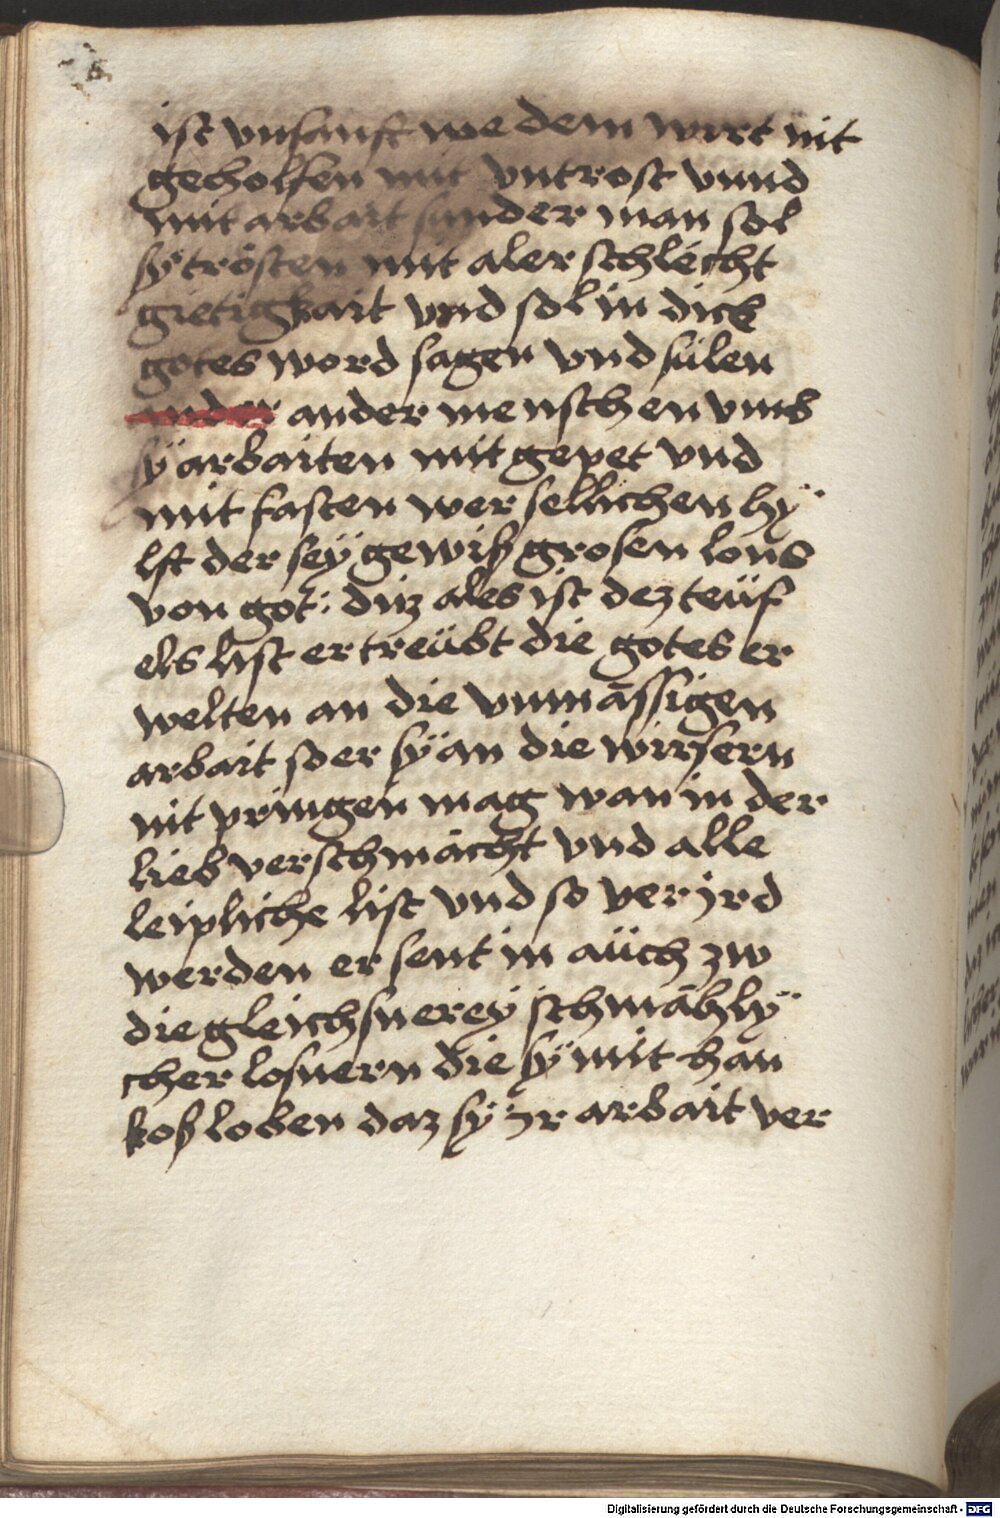 ist vnsanft we dem wirt nit
geholfen mit vntrost vnnd
mit arbait sunder man sol
sÿ trösten mit aler schlecht
gietigkait vnd sol in dick
gotes word sagen vnd sülen
ander menschen vmb
sÿ arbaiten mit gepet vnd
mit fasten wer sellichen hÿ
lft der seÿ gewiß grosen lons
von got: diz ales ist dez teüf
els list er treübt die gotes er
welten an die vnmässigen
arbait so er sÿ an die wirsern
nit pringen mag wan in der
lieb verschmächt vnd alle
leipliche list vnd so ver jrd
werden er sent in aüch zw
die gleichsnereÿ schmähly
cher losnern die sÿ mit han
koß loben daz sÿ jr arbait ver
Digitalisierung gefördert durch die Deutsche Forschungsgemeinschaft - DFG